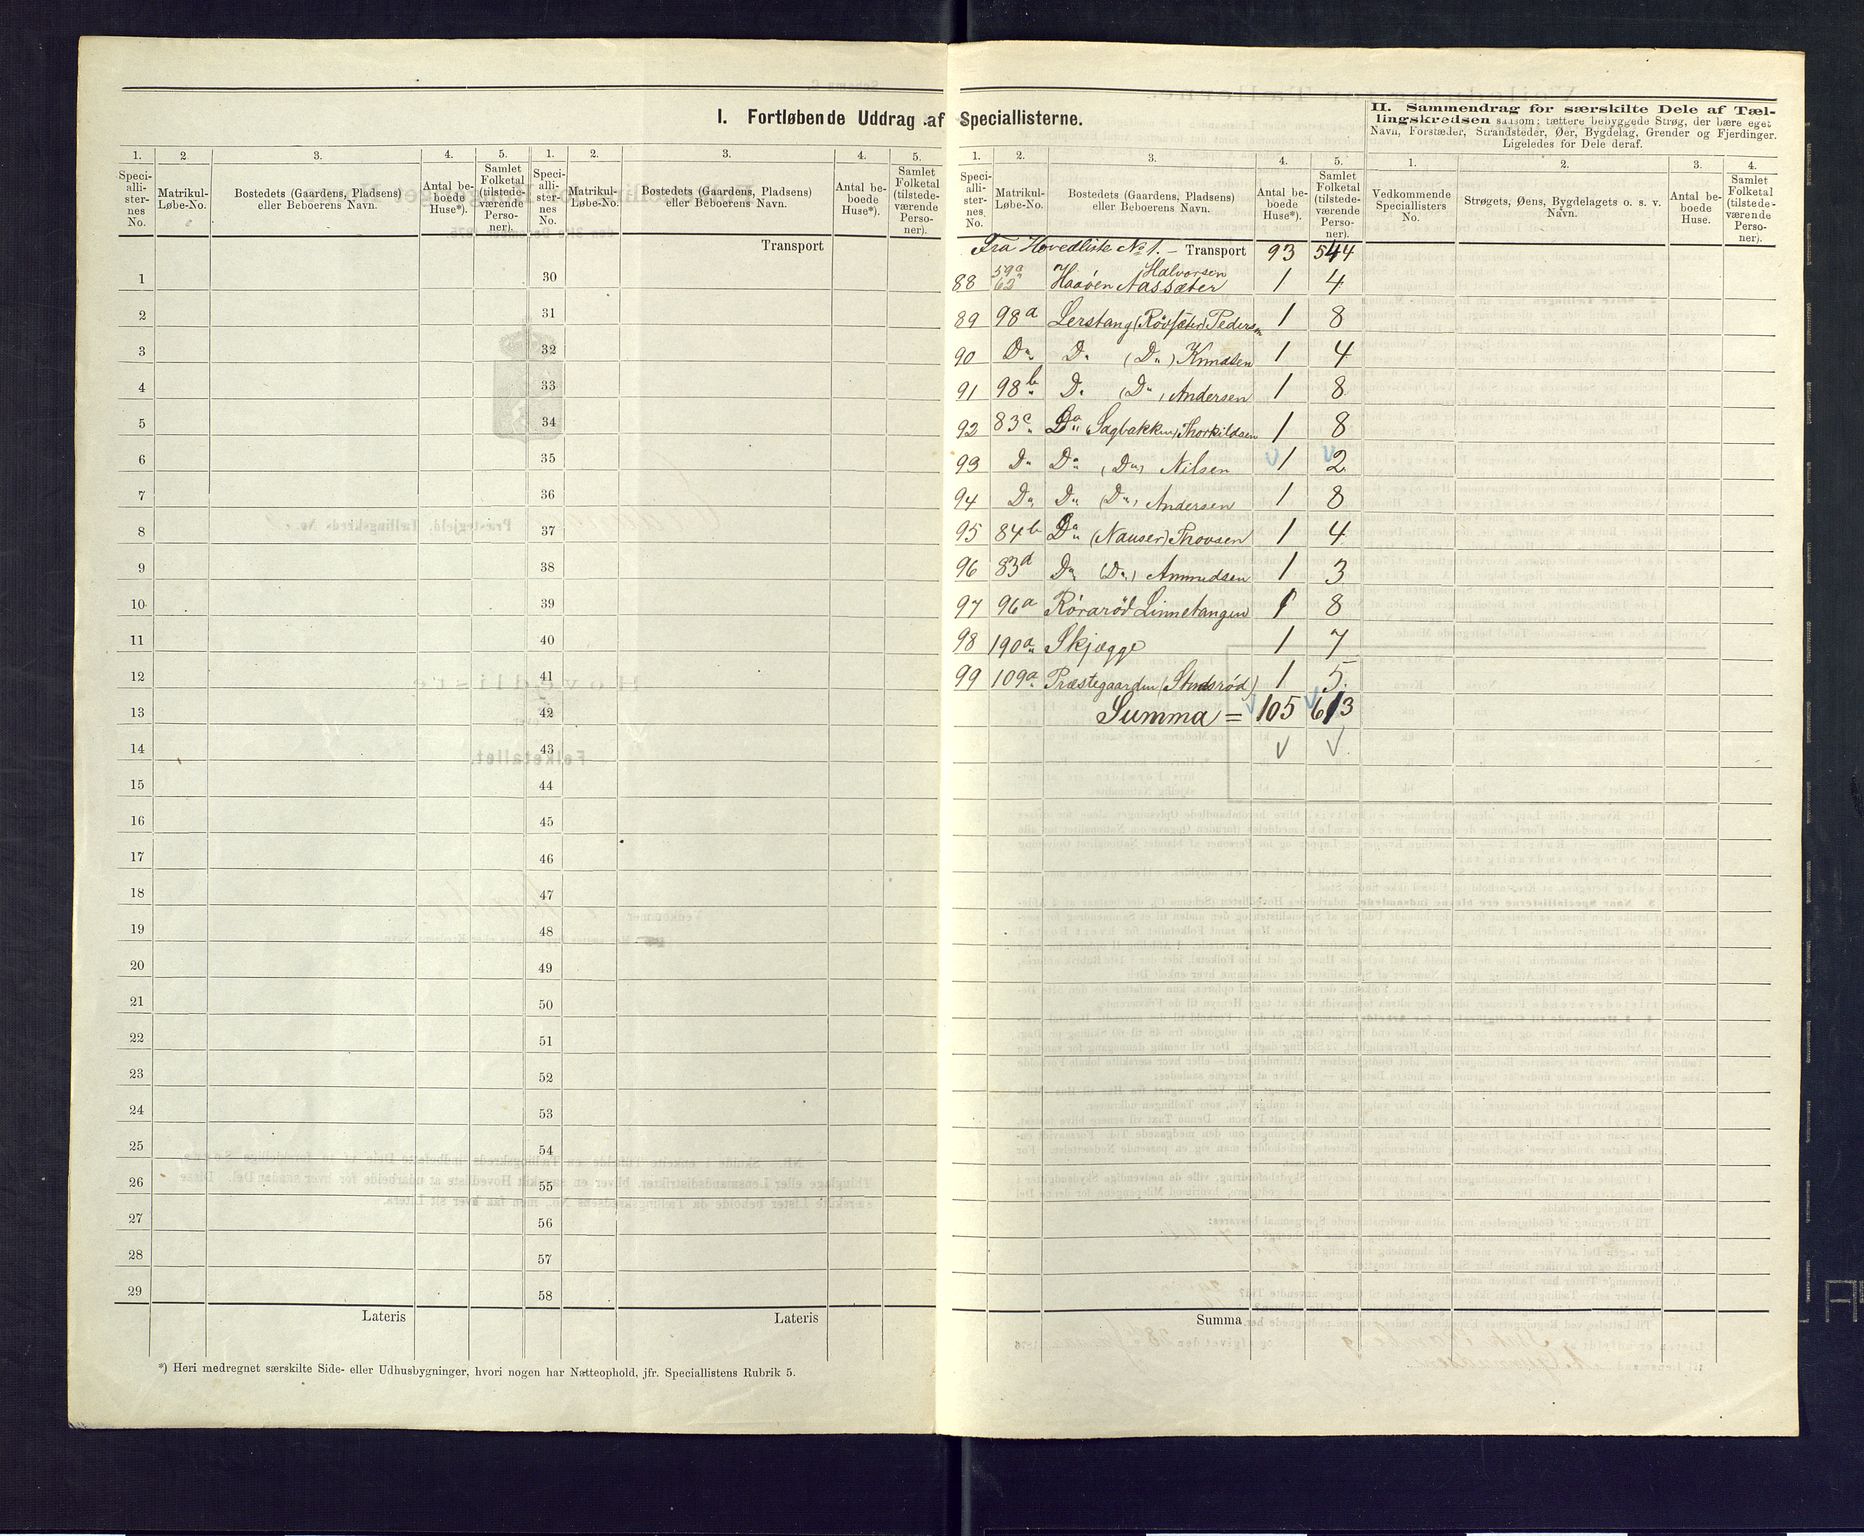 I. Fortløbende Uddrag af Speciallisterne.
II. Sammendrag for særskilte Dele af Tællingskredsen saasom: tættere bebyggede Strøg, der bære eget Navn, Forstæder, Strandsteder, Øer, Bygdelag, Grender og Fjerdinger. Ligeledes for Dele deraf.
1. 2. 3. 4. 5. 1. 2. 3. 4. 5.
Speciallisternes No. Matrikul-Løbe-No. Bostedets (Gaardens, Pladsens) eller Beboerens Navn. Antal beboede Huse*). Samlet Folketal (tilstedeværende Personer). Speciallisternes No. Matrikul-Løbe-No. Bostedets (Gaardens, Pladsens) eller Beboerens Navn. Antal beboede Huse*). Samlet Folketal (tilstedeværende Personer).
Transport
1 30
2 31
3 32
4 33
5 34
6 35
7 36
8 37
9 38
10 39
11 40
12 41
13 42
14 43
15 44
16 45
17 46
18 47
19 48
20 49
21 50
22 51
23 52
24 53
25 54
26 55
27 56
28 57
29 58
Lateris Lateris
*) Heri medregnet særskilte Side- eller Udhusbygninger, hvori nogen har Natteophold, jfr. Speciallistens Rubrik 5.
1. 2. 3. 4. 5. 1. 2. 3. 4.
Speciallisternes No. Matrikul-Løbe-No. Bostedets (Gaardens, Pladsens) eller Beboerens Navn. Antal beboede Huse*). Samlet Folketal (tilstedeværende Personer). Vedkommende Speciallisters No. Strøgets, Øens, Bygdelagets o. s. v. Navn. Antal beboede Huse. Samlet Folketal (tilstedeværende Personer).
Fra Hovedliste No 1. - Transport 93 544
88 59a 62 Haaøen Aassæter Halvorsen 1 4
89 98a Lerstang (Rødsæter) Pedersen 1 8
90 Do Do (Do) Knudsen 1 4
91 98b Do (Do) Andersen 1 8
92 83c Do (Sagbakken) Thorkildsen 1 8
93 Do Do (Do) Nilsen 1 2
94 Do Do (Do) Andersen 1 8
95 84b Do (Nauser) Thovsen 1 4
96 83d Do (Do) Amundsen 1 3
97 96a Rørarød Linnetangen 1 8
98 190a Skjægge 1 7
99 109a Præstegaarden (Studsrød) 1 5
Summa = 105 613
Summa